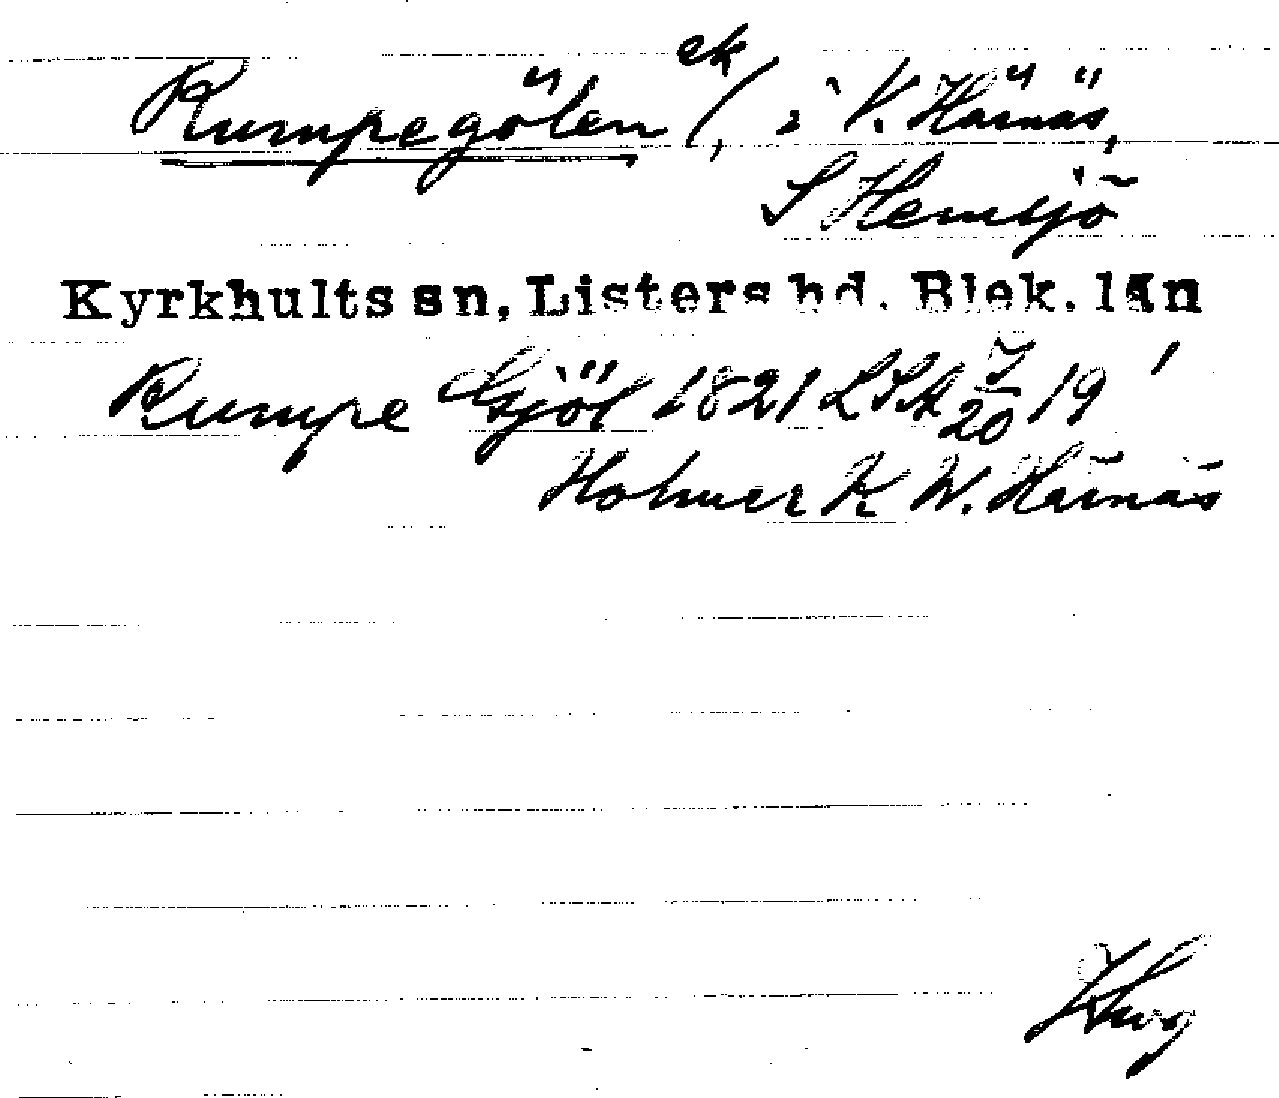 Rumpegölen ek/, i V. Härnäs,
S Hemsjö
Kyrkhults sn, Listers hd. Blek. län
Rumpe Gjöl 1821 LSA 7/20 19
Holmer K W. Härnäs